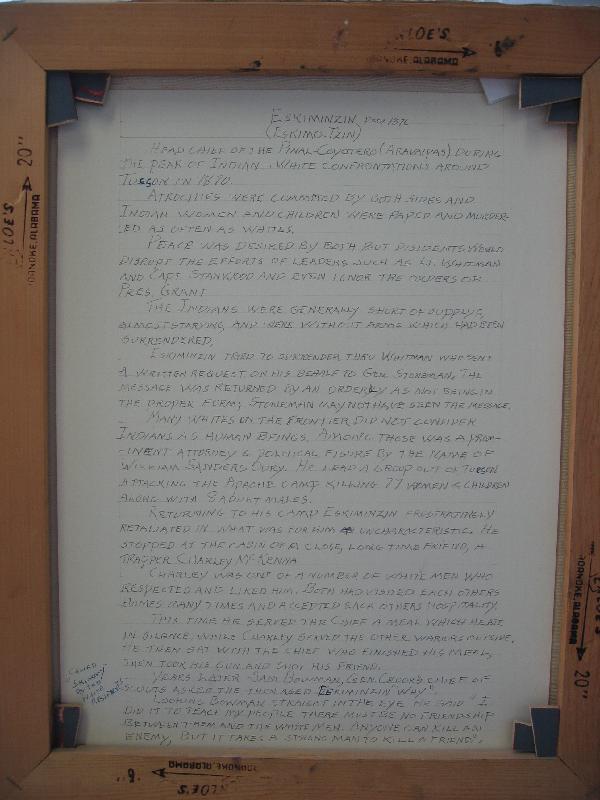 ESKIMINZIN
(ESKIMO-TZIN)
HEAD CHIEF OF THE PINAL-COYOTERO (ARAVAIPAS) DURING
THE PEAK OF INDIAN-WHITE CONFRONTATIONS AROUND
TUSSON IN 1870.
ATROCITIES WERE COMMITTED BY BOTH SIDES AND
INDIAN WOMEN AND CHILDREN WERE RAPED AND MURDER-
ED AS OFTEN AS WHITES.
PEACE WAS DESIRED BY BOTH BUT DISIDENTS WOULD
DISRUPT THE EFFORTS OF LEADERS SUCH AS LT. WHITMAN
AND CAPT. STANWOOD AND EVEN IGNOR THE ORDERS OF
PRES. GRANT
THE INDIANS WERE GENERALLY SHORT OF SUPPLYS,
ALMOST STARVING, AND WERE WITHOUT ARMS WHICH HAD BEEN
SURRENDERED.
ESKIMINZIN TRIED TO SURRENDER THRU WHITMAN WHO SENT
A WRITTEN REQUEST ON HIS BEHALF TO GEN. STONEMAN. THE
MESSAGE WAS RETURNED BY AN ORDERLY AS NOT BEING IN
THE PROPER FORM; STONEMAN MAY NOT HAVE SEEN THE MESSAGE.
MANY WHITES ON THE FRONTIER DID NOT CONSIDER
INDIANS AS HUMAN BEINGS. AMONG THOSE WAS A PROM-
INENT ATTORNEY & POLITICAL FIGURE BY THE NAME OF
WILLIAM SANDERS OURY. HE LEAD A GROUP OUT OF TUSSON
ATTACKING THE APACHE CAMP KILLING 77 WOMEN & CHILDREN
ALONG WITH 8 ADULT MALES.
RETURNING TO HIS CAMP ESKIMINZIN FRUSTRATIVELY
RETALIATED IN WHAT WAS FOR HIM UNCHARACTERISTIC. HE
STOPPED AT THE CABIN OF A CLOSE, LONG TIME FRIEND, A
TRAPPER CHARLEY McKENNA
CHARLEY WAS ONE OF A NUMBER OF WHITE MEN WHO
RESPECTED AND LIKED HIM. BOTH HAD VISITED EACH OTHERS
HOMES MANY TIMES AND ACCEPTED EACH OTHERS HOSPITALITY.
THIS TIME HE SERVED THE CHIEF A MEAL WHICH HE ATE
IN SILENCE, WHILE CHARLEY SERVED THE OTHER WARRIORS OUTSIDE.
HE THEN SAT WITH THE CHIEF WHO FINISHED HIS MEAL,
THEN TOOK HIS GUN AND SHOT HIS FRIEND.
YEARS LATER SAM BOWMAN, GEN. CROOKS CHIEF OF
SCOUTS ASKED THE THEN AGED ESKIMINZIN "WHY".
LOOKING BOWMAN STRAIGHT IN THE EYE HE SAID "I
DID IT TO TEACH MY PEOPLE THERE MUST BE NO FRIENDSHIP
BETWEEN THEM AND THE WHITE MEN. ANYONE CAN KILL AN
ENEMY, BUT IT TAKES A STRONG MAN TO KILL A FRIEND".
LOE'S
ROANOKE, ALABAMA
20"
LOE'S
ROANOKE, ALABAMA
LOE'S
ROANOKE, ALABAMA
20"
LOE'S
ROANOKE, ALABAMA